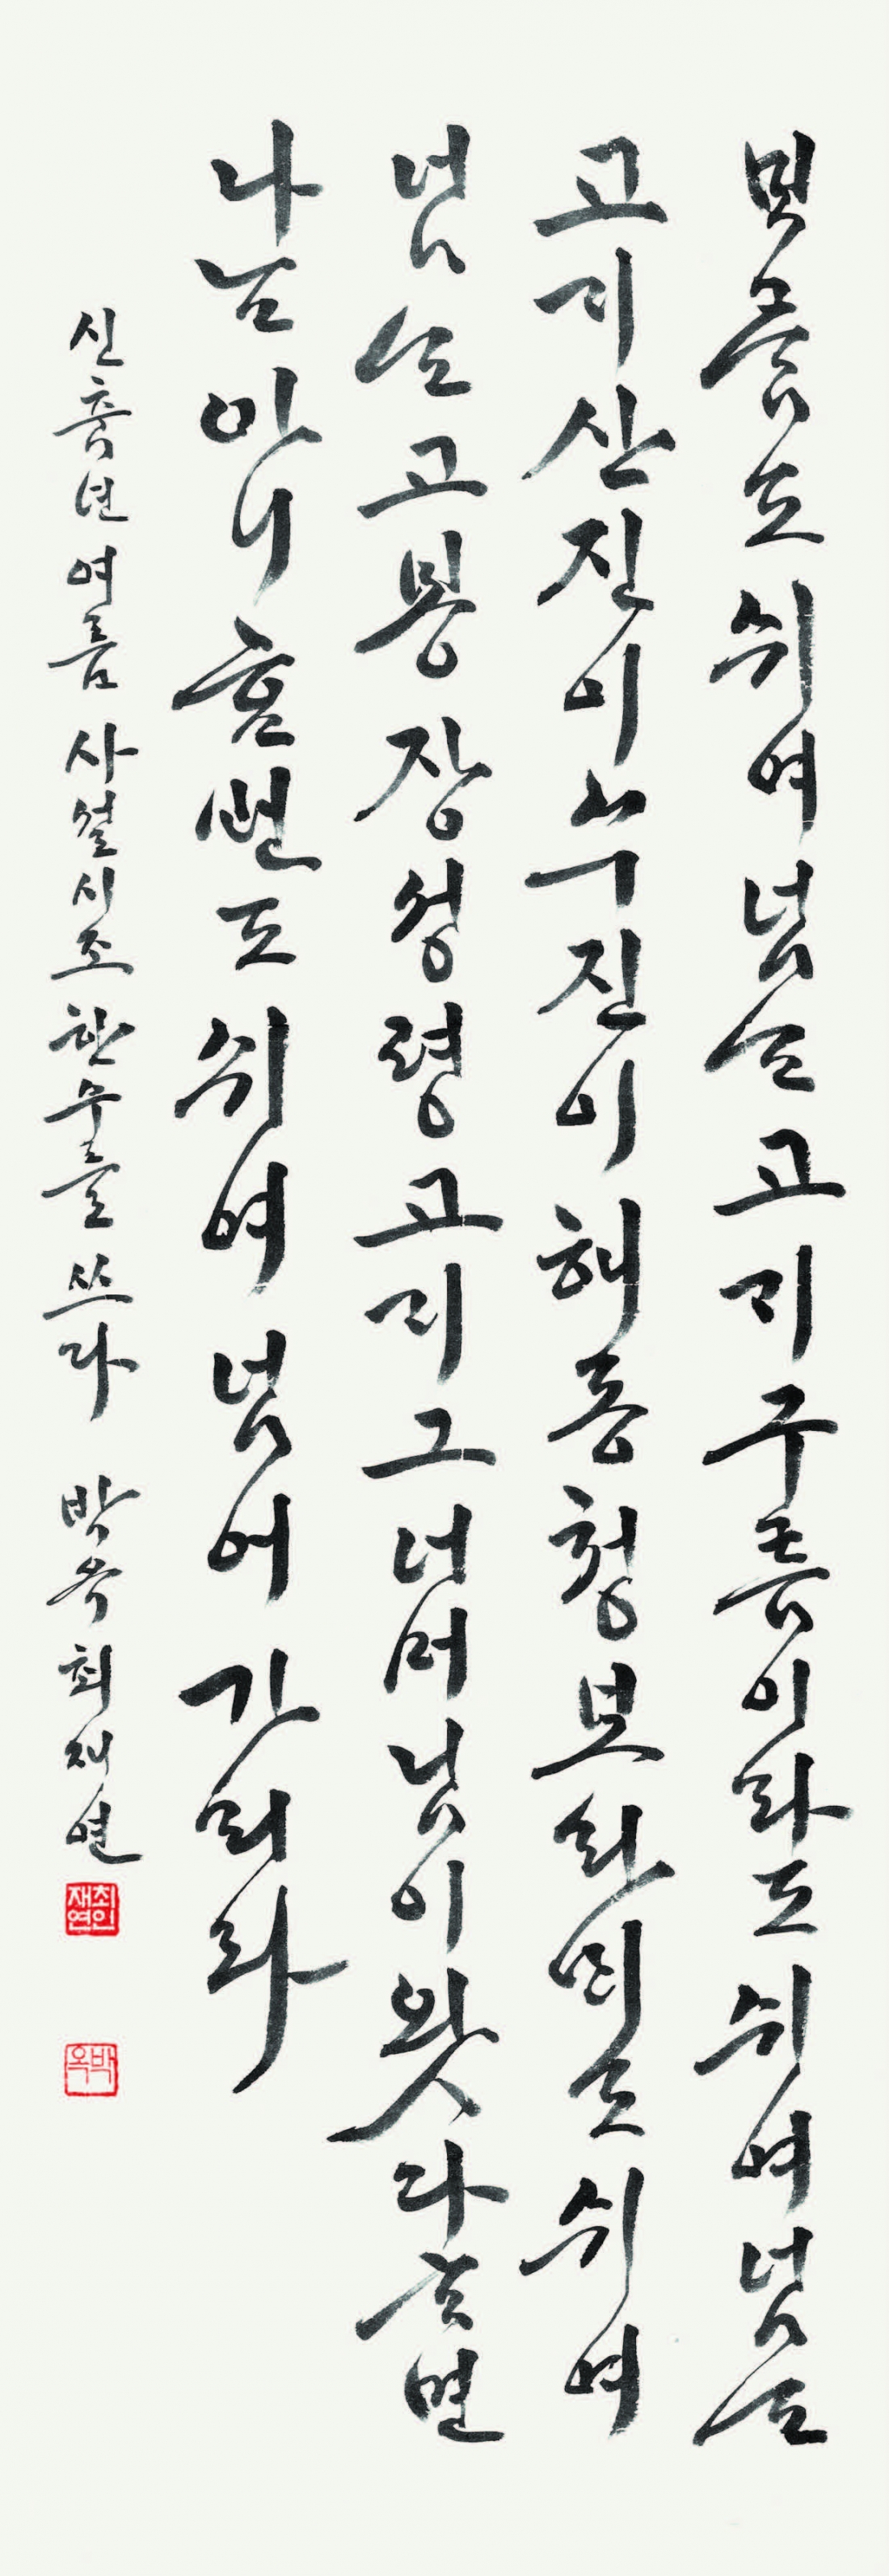 ᄇᆞ름도 쉬여 넘는 고ᄀᆡ 구름이라도 쉬여 넘는
고ᄀᆡ 산진이 수진이 해동청 보라ᄆᆡ도 쉬여
넘는 고봉 장성령 고ᄀᆡ 그 너머 님이 왓다 ᄒᆞ면
나는 아니 ᄒᆞᆫ 번도 쉬여 넘어 가리라
여름 사설시조 한 수를 쓰다 박옥 최재연
최인재연
박옥